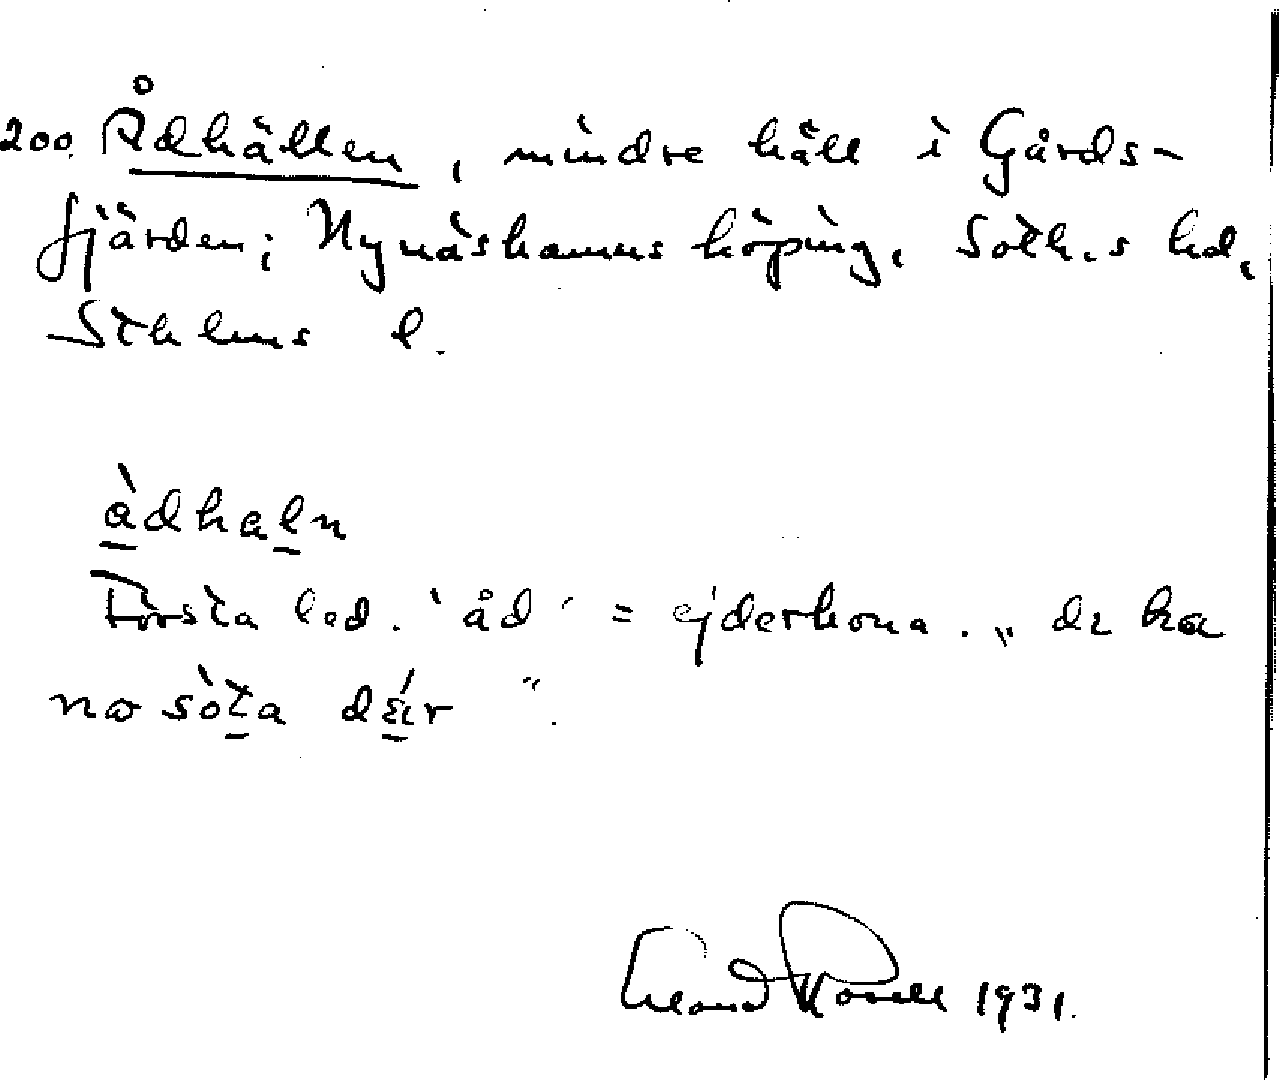 200. Ådhällen, mindre häll i Gårds-
fjärden; Nynäshamns köping, Soth.s hd,
Sthlms l.
àdhaln
Första led. 'åd' = ejderhona. „ de ha
no sòta déir ".
Erland Rosell 1931.